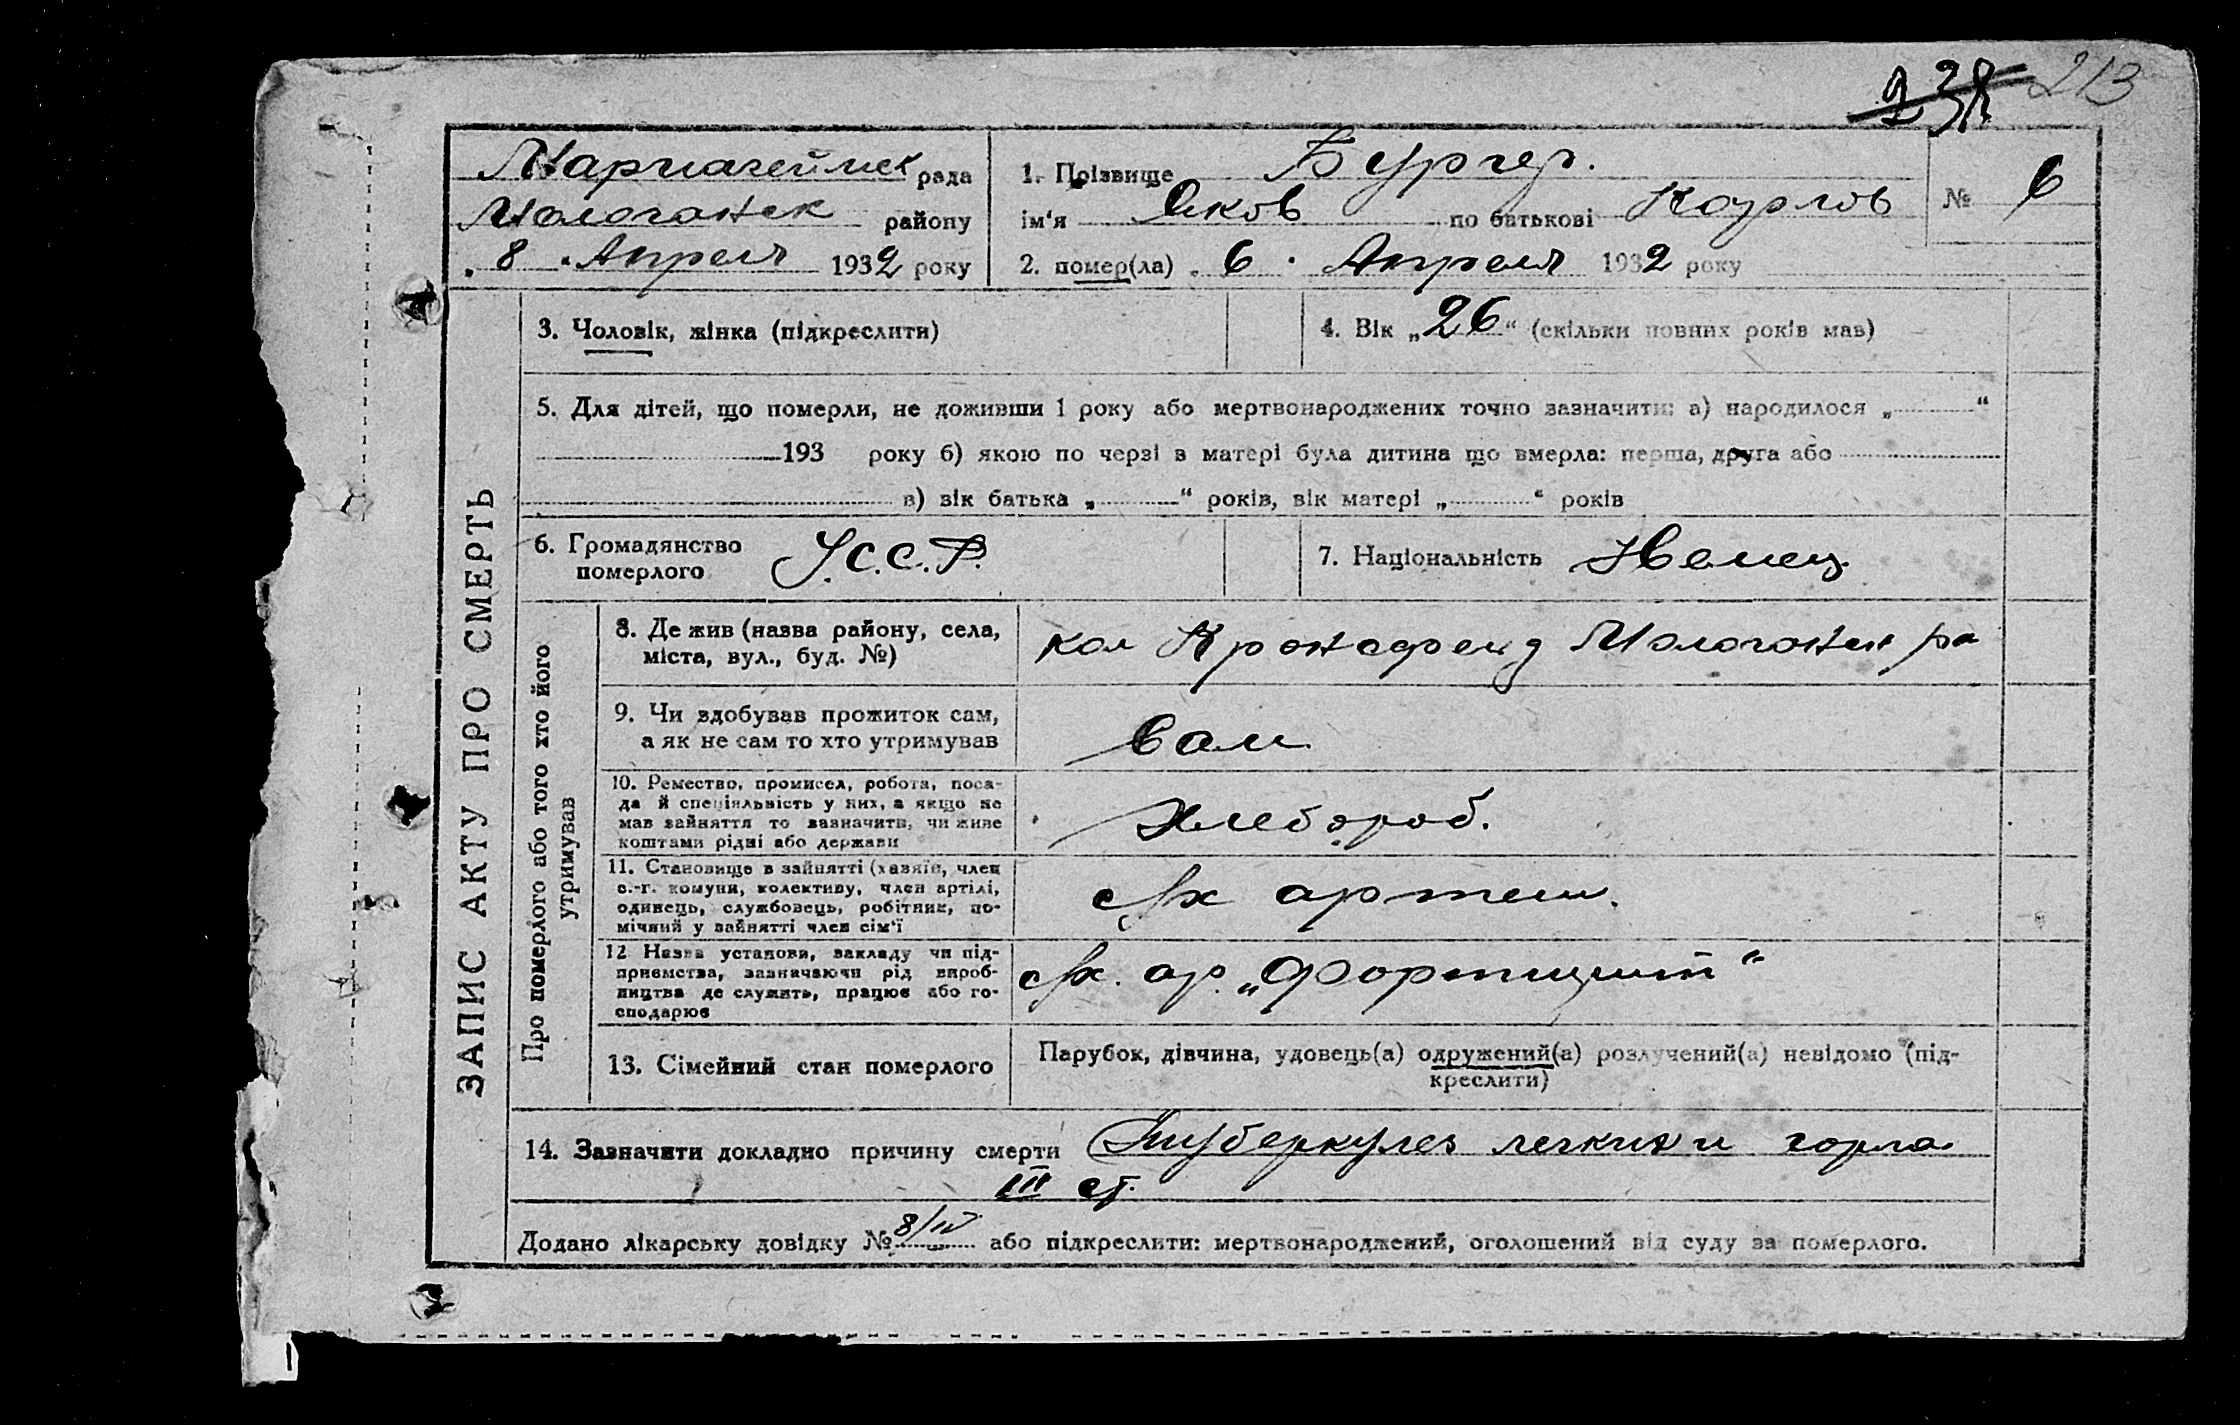 238 213
Мариагеймск рада
Молочанск району
„8“ Апреля 1932 року
1. Прізвище Бургер.
ім'я Яков по батькові Карлов
2. помер(ла) „6“ Апреля 1932 року
№ 6
ЗАПИС АКТУ ПРО СМЕРТЬ
3. Чоловік, жінка (підкреслити)
4. Вік „26“ (скільки повних років мав)
5. Для дітей, що померли, не доживши 1 року або мертвонароджених точно зазначити: а) народилося „ “
193 року б) якою по черзі в матері була дитина що вмерла: перша, друга або
в) вік батька „ “ років, вік матері „ “ років
6. Громадянство
померлого У.С.С.Р.
7. Національність Немец
Про померлого або того хто його
утримував
8. Де жив (назва району, села,
міста, вул., буд. №)
кол Кронсфельд Молочанск ра
9. Чи здобував прожиток сам,
а як не сам то хто утримував
Сам
10. Ремество, промисел, робота, поса-
да й спеціяльність у них, а якщо не
мав зайняття то зазначити, чи живе
коштами рідні або держави
Хлебороб.
11. Становище в зайнятті (хазяїн, член
с.-г. комуни, колективу, член артілі,
одинець, службовець, робітник, по-
мічний у зайнятті член сім'ї
с/х артели.
12. Назва установи, закладу чи під-
приємства, зазначаючи рід вироб-
ництва де служить, працює або го-
сподарює
с/х. ар. „Фортшрит“
13. Сімейний стан померлого
Парубок, дівчина, удовець(а) одружений(а) розлучений(а) невідомо (під-
креслити)
14. Зазначити докладно причину смерти Туберкулез легких и горла
III ст.
Додано лікарську довідку № 8/IV або підкреслити: мертвонароджений, оголошений від суду за померлого.